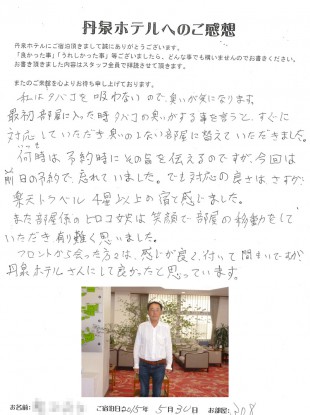 丹泉ホテルへのご感想
丹泉ホテルにご宿泊頂きまして誠にありがとうございます。
「良かった事」「うれしかった事」等ございましたら、どんな事でも構いませんのでお書きくださいませ。
お書き頂きました内容はスタッフ全員で拝読させて頂きます。
またのご来館を心よりお待ち申し上げております。
私はタバコを吸わないので、臭いが気になります。
最初部屋に入った時タバコの臭いがする事を言うと、すぐに
対応していただき臭いのしない部屋に替えていただきました。
いつも
何時は、予約時にその旨を伝えるのですが、今回は
前日の予約で、忘れていました。でも対応の良さはさすが、
楽天トラベル4星以上の宿と感じました。
また部屋係のヒロコ女史は笑顔で部屋の移動をして
いただき有り難く思いました。
フロントから会った方々は、感じが良く、
丹泉ホテルさんにして良かったと思っています。
お名前:
ご宿泊日2015年 5月30日 お部屋: 208